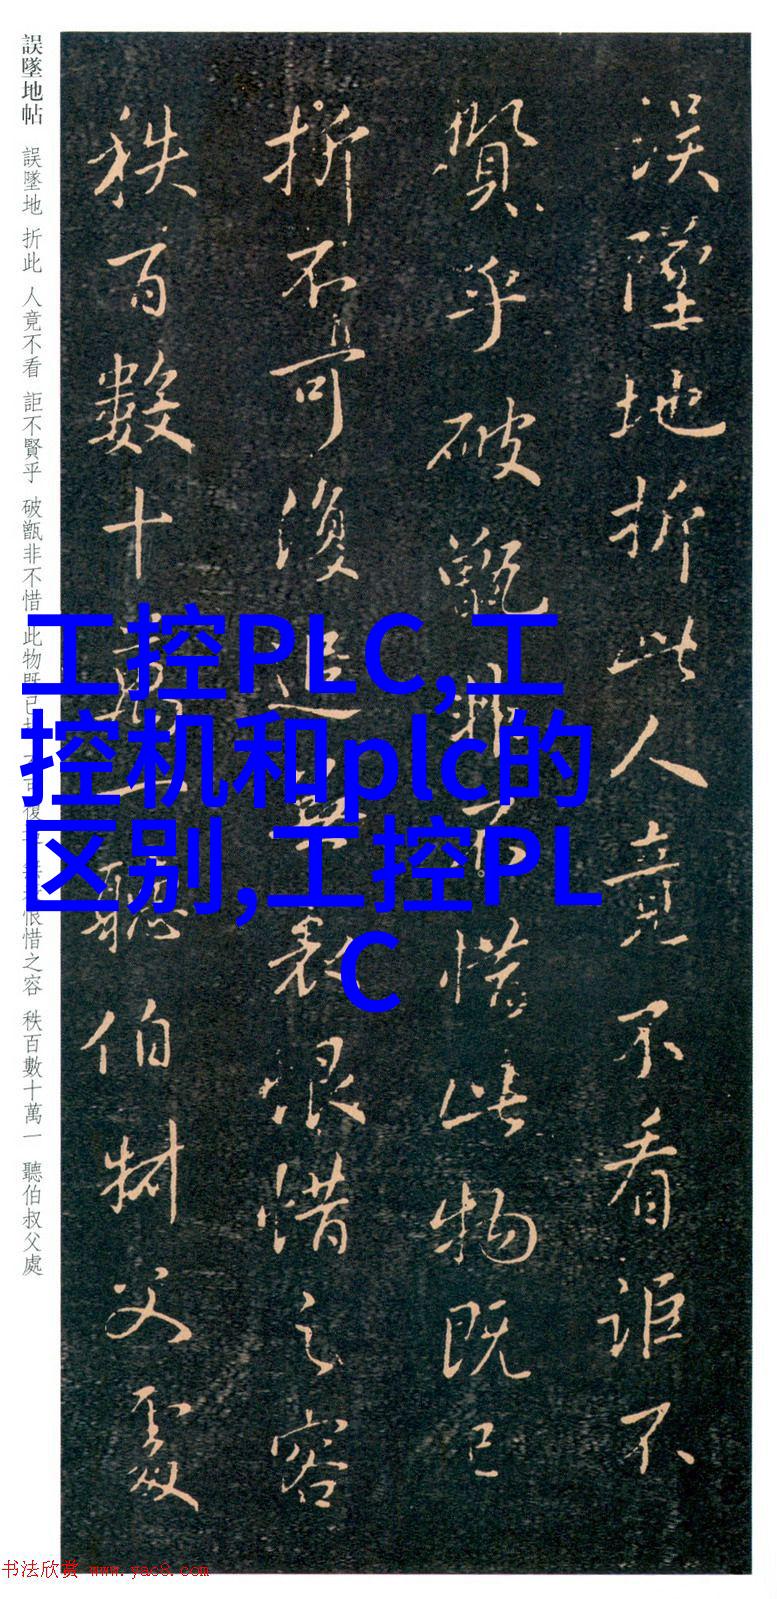 誤墜地折此人竟不看詎不
賢乎破甑非不惜此物既已
折不可復追無恨惜之容
秩百數十萬一聽伯叔父處
誤墜地帖 誤墜地 折此 人竟不看 詎不賢乎 破甑非不惜 此物既已 可復 無 恨惜之容 秩百數十萬一 聽伯叔父處
工控PLC,工
控机和plc的
区别,工控PL
C
书法欣赏 www.yac8.com